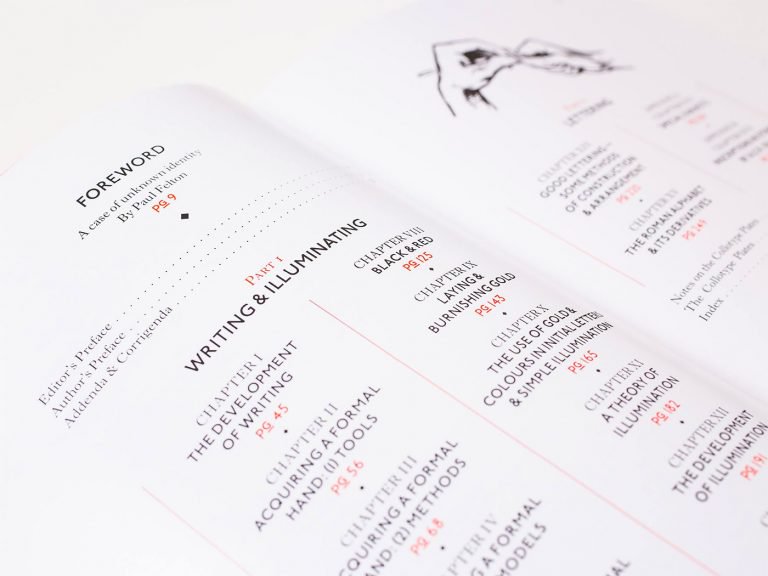 FOREWORD
A case of unknown identity
By Paul Felton
PG 9
Editor's Preface
Author's Preface
Addenda & Corrigenda
PART I
WRITING & ILLUMINATING
CHAPTER I
THE DEVELOPMENT
OF WRITING
PG 45
CHAPTER II
ACQUIRING A FORMAL
HAND: (I) TOOLS
PG 56
CHAPTER III
ACQUIRING A FORMAL
HAND: (2) METHODS
PG 68
CHAPTER IV
A FORMAL
MODELS
CHAPTER VIII
BLACK & RED
PG 125
CHAPTER IX
LAYING &
BURNISHING GOLD
PG 143
CHAPTER X
THE USE OF GOLD &
COLOURS IN INITIAL LETTERS
& SIMPLE ILLUMINATION
PG 165
CHAPTER XI
A THEORY OF
ILLUMINATION
PG 182
CHAPTER XII
THE DEVELOPMENT
OF ILLUMINATION
PG 191
LETTERING
CHAPTER XIV
GOOD LETTERING—
SOME METHODS
OF CONSTRUCTION
& ARRANGEMENT
PG 220
CHAPTER XV
THE ROMAN ALPHABET
& ITS DERIVATIVES
PG 249
Notes on the Collotype Plates
The Collotype Plates
Index